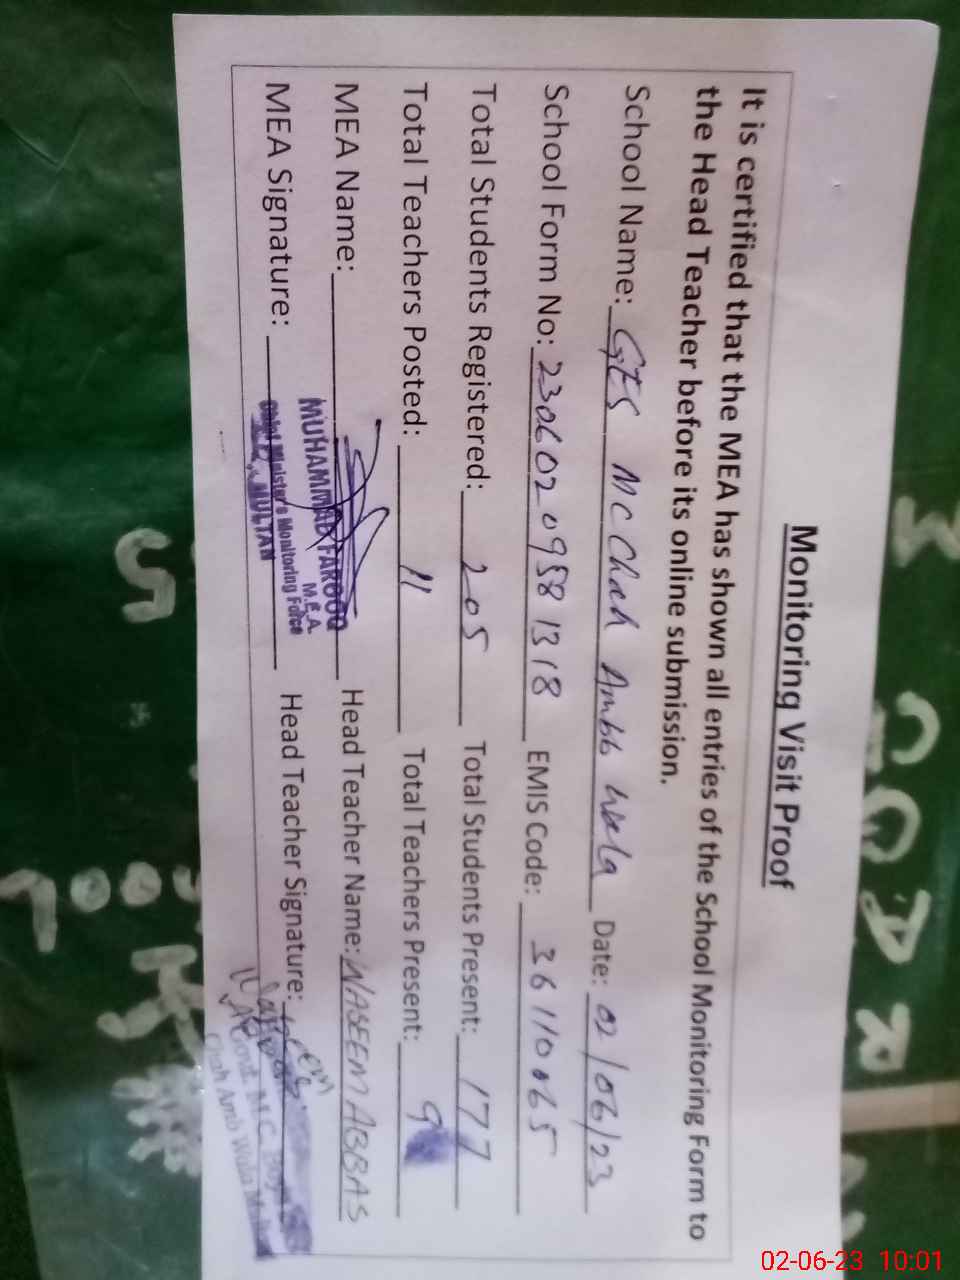 Monitoring Visit Proof
It is certified that the MEA has shown all entries of the School Monitoring Form to
the Head Teacher before its online submission.
School Name: GES MC Chah Ambb wala Date: 02/06/23
School Form No: 230602095813 18 EMIS Code: 36110065
Total Students Registered: 205 Total Students Present: 177
Total Teachers Posted: 11 Total Teachers Present: 9
MEA Name: Head Teacher Name: WASEEM ABBAS
MEA Signature: Head Teacher Signature:
MUHAMMAD FAROOQ
M.E.A.
Chief Minister's Monitoring Force
MULTAN
Govt. M.C. Boys
Chah Amb Wala
02-06-23 10:01